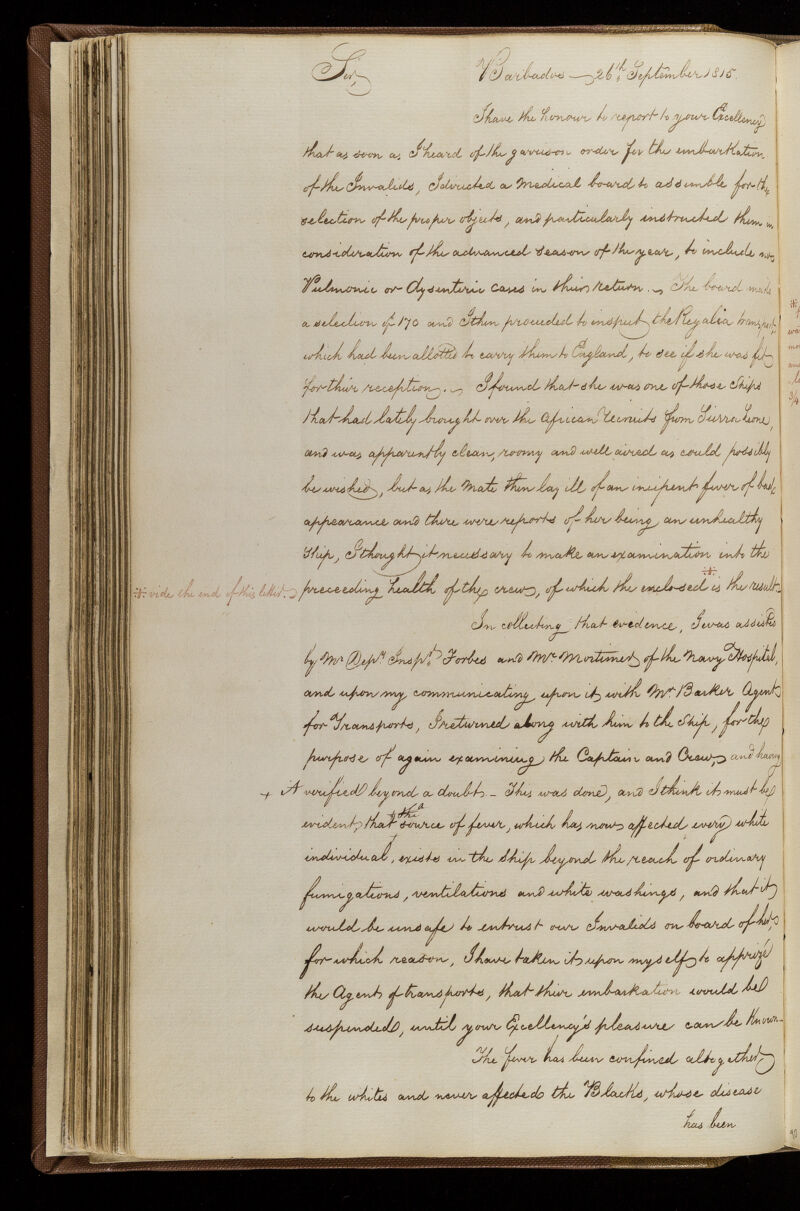 Sir, Barbados — 26th September 1815.
I have the honour to report to your Excellency
that as soon as I heard of the garrison order for the embarkation
of the Invalids, I directed a Medical board to assemble for the
selection of the proper objects, and particularly instructed them in
consideration of the advanced season of the year, to include no
Pulmonic or dysenteric cases in their return. The board made
a selection of 170 and I then proceeded to inspect the Regalia transport,
which had been allotted to carry them to England, to see if she was fit
for their reception. I found that she was one of those Ships
that had lately brought over the African recruits from Sierra Leone,
and was apparently clean, roomy and well aired as could possibly
be wished, but as the Mate then lay ill of an incipent fever of bad
appearance and there were reports of her being an unhealthy
Ship, I thought it necessary to make an examination into the
※ vide the end of this letter. preceeding health of the crew, of which the enclosed ※ is the result
In collecting that evidence, I was assisted
by Mr. Depy. Inspr. Forbes and Mr. Mortimer of the Navy Hospital,
and upon my communicating upon it with Mr. Barker Agent
for Transports, I returned along with him to the Ship, for the
purpose of again examining the Captain and Crew, and having
it verified beyond a doubt - This was done, and I think it must be
evident, that the source of fever, which has now affected every white
individual, exists in the Ship beyond the reach of ordinary
fumigations, ventilations and white washings, and that it
would be unsafe to entrust our Invalids on board of her,
for which reason, I have taken it upon myself to apprize
the Agent of transports, that their embarkation would be
suspended, until your Excellency's pleasure can be known—
The fever has been confined altogether
to the whites and never affected the Blacks, whose disease
has been